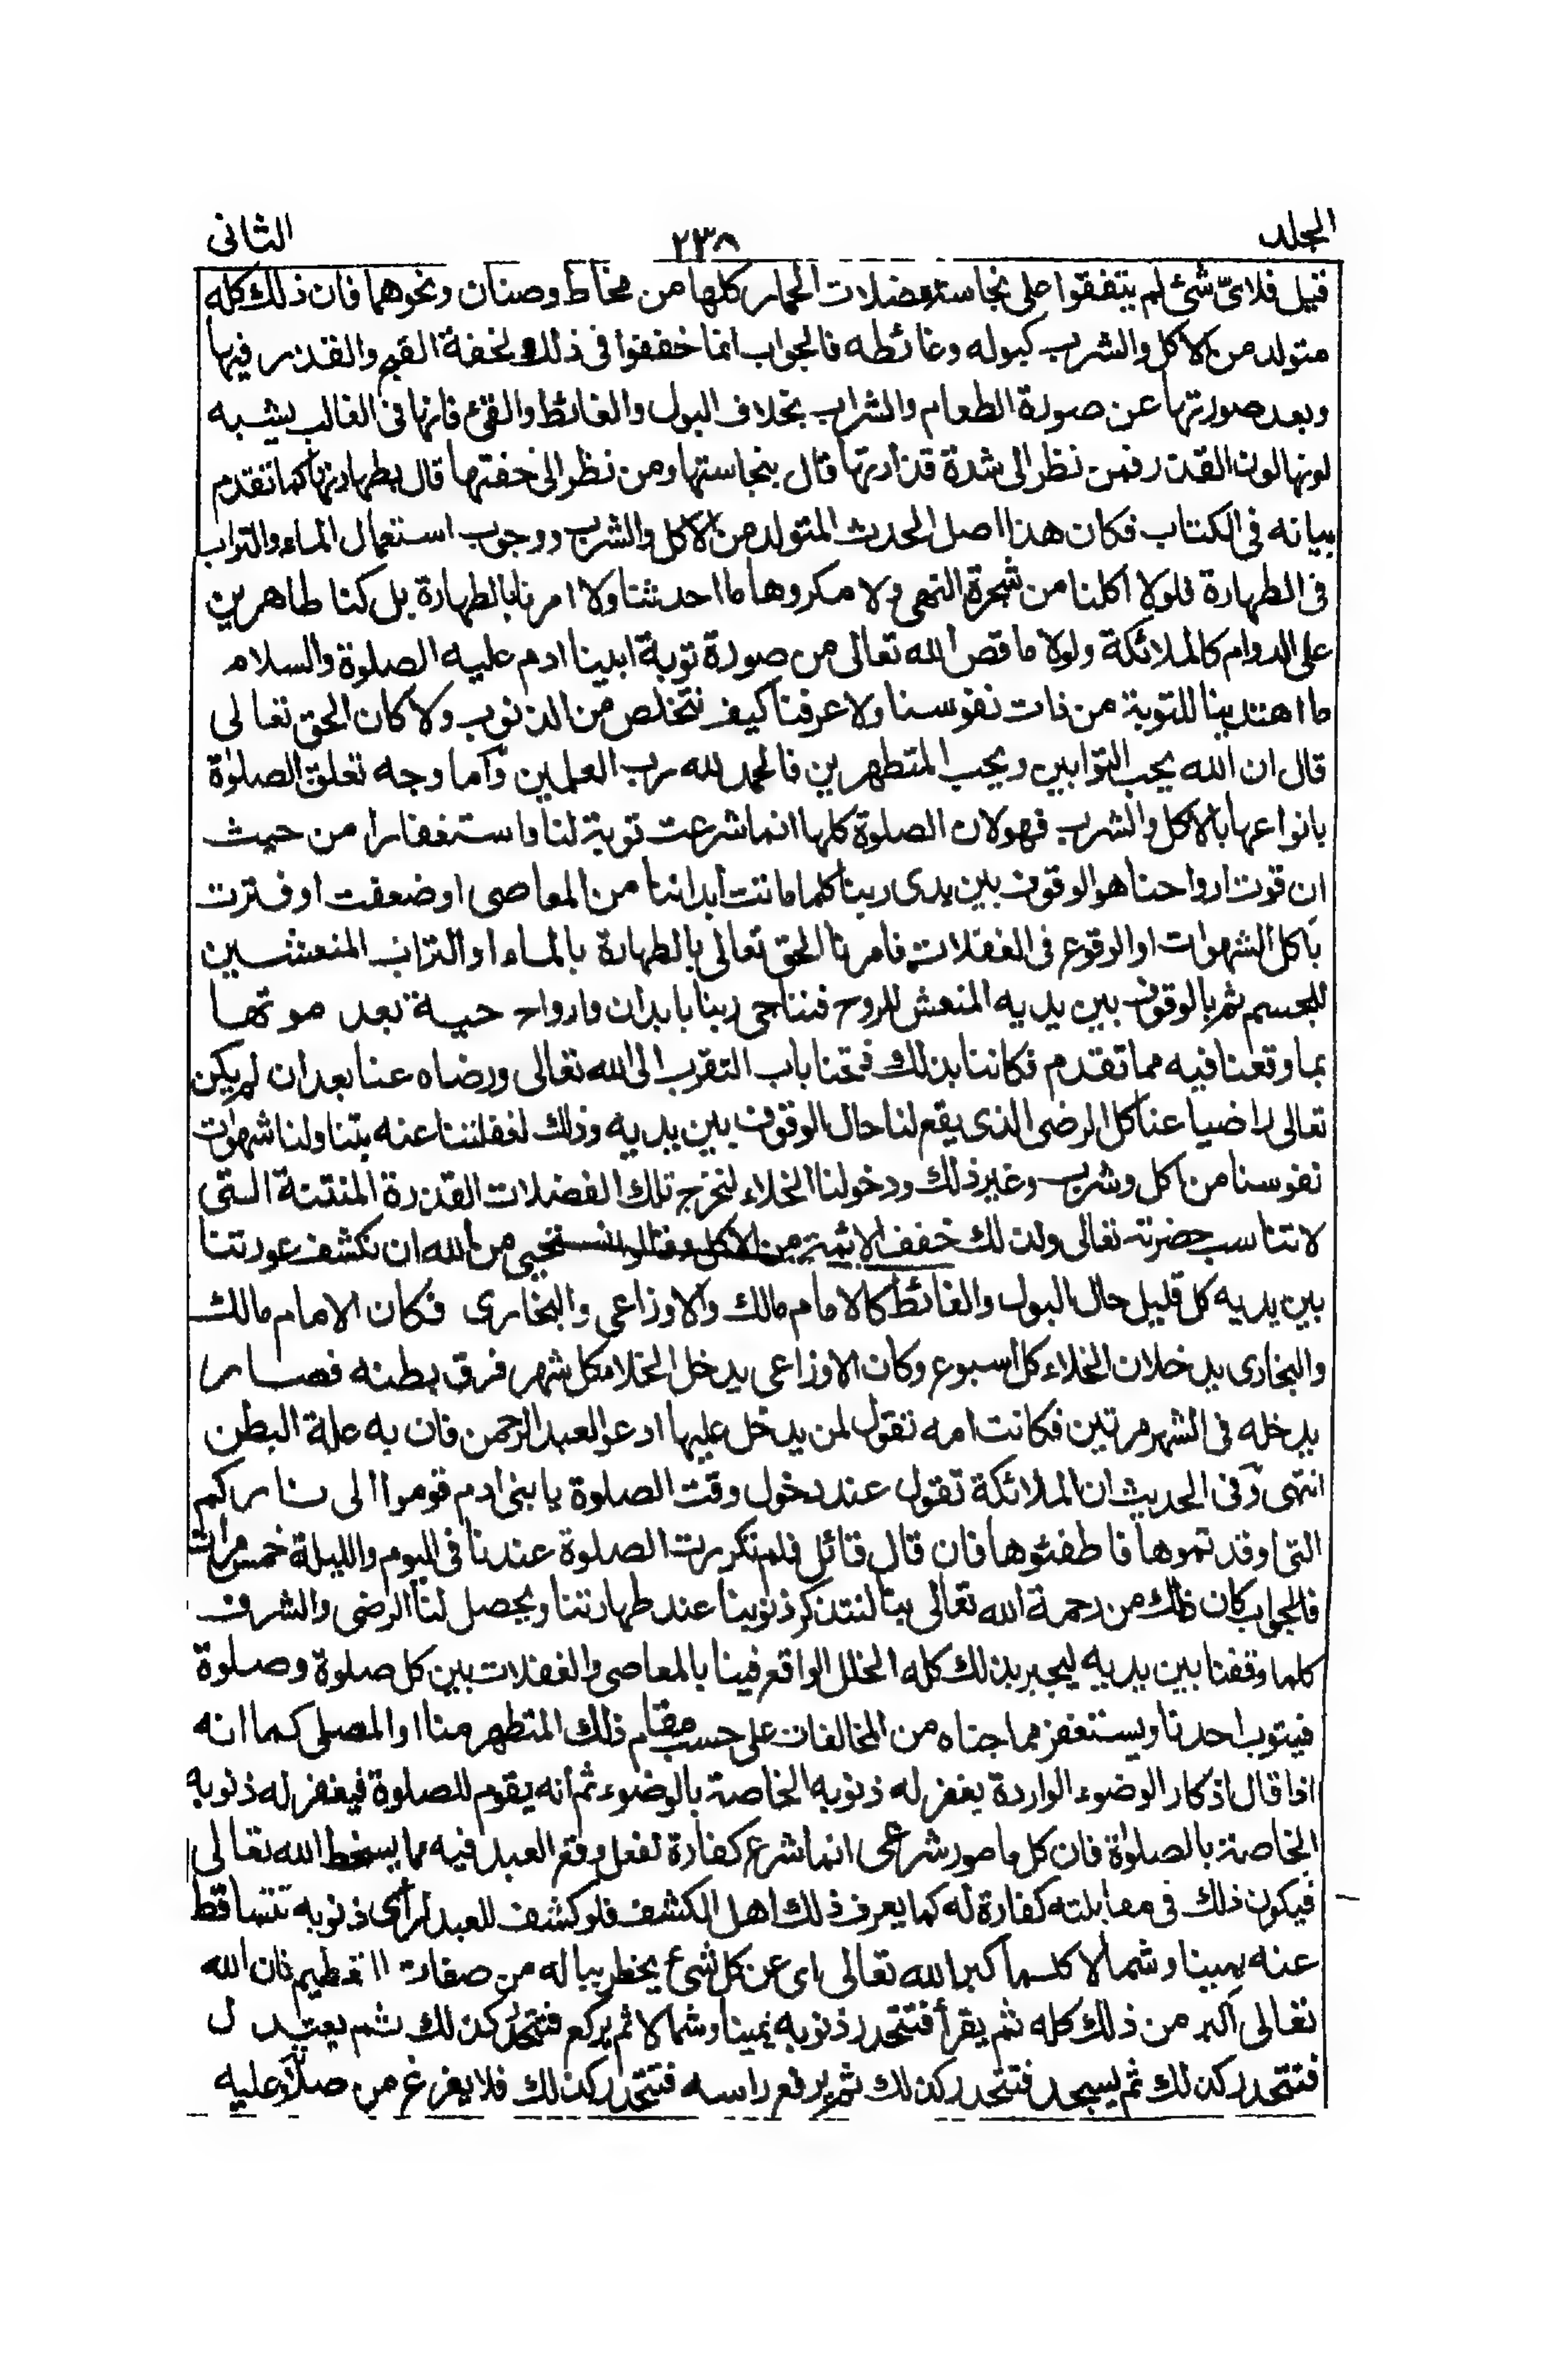 المجلد ٢٣٨ الثانى
قيل فلاىّ شئ لم يتفقوا على نجاسة فضلات الحمار كلها من مخاط وصنان ونحوهما فان ذلك كله
متولد من الاكل والشرب كبوله وغائطه فالجواب انما خففوا فى ذلك لخفة القبح والقذر فيها
وبعد صورتها عن صورة الطعام والشراب بخلاف البول والغائط والقئ فانها فى الغالب يشبه
لونها لون القذر فمن نظر الى شدة قذارتها قال بنجاستها ومن نظر الى خفتها قال بطهارتها كما تقدم
بيانه فى الكتاب فكان هذا اصل الحدث المتولد من الاكل والشرب ووجوب استعمال الماء والتراب
فى الطهارة فلولا اكلنا من شجرة النهى ولا مكروها ما احدثنا ولا امرنا بالطهارة بل كنا طاهرين
على الدوام كالملائكة ولولا ما قص الله تعالى من صورة توبة ابينا ادم عليه الصلوة والسلام
ما اهتدينا للتوبة من ذات نفوسنا ولا عرفنا كيف نتخلص من الذنوب ولا كان الحق تعالى
قال ان الله يحب التوابين ويحب المتطهرين فالحمد لله رب العلمين وأما وجه تعلق الصلوٰة
بانواعها بالاكل والشرب فهو لان الصلوة كلها انما شرعت توبة لنا واستغفارا من حيث
ان قوت ارواحنا هو الوقوف بين يدى ربنا كلما ماتت أبداننا من المعاصى او ضعفت او فترت
باكل الشهوات او الوقوع فى الغفلات فامرنا الحق تعالى بالطهارة بالماء او التراب المنعشين
للجسم ثم بالوقوف بين يديه المنعش للروح فنناجى ربنا بابدان وارواح حية بعد موتها
بما وقعنا فيه مما تقدم فكاننا بذلك فتحنا باب التقرب الى الله تعالى ورضاه عنا بعد ان لم يكن
تعالى راضيا عنا كل الرضى الذى يقع لنا حال الوقوف بين يديه وذلك لغفلتنا عنه بتناولنا شهوات
نفوسنا من اكل وشرب وغير ذلك ودخولنا الخلاء لنخرج تلك الفضلات القذرة المنتنة التى
لا تناسب حضرته تعالى ولذلك خفف الائمة من الاكل وقالوا نستحيى من الله ان نكشف عورتنا
بين يديه كل قليل حال البول والغائط كالامام مالك والاوزاعى والبخارى فكان الامام مالك
والبخارى يدخلان الخلاء كل اسبوع وكان الاوزاعى يدخل الخلاء كل شهر فرق بطنه فصار
يدخله فى الشهر مرتين فكانت امه تقول لمن يدخل عليها ادعوا لعبد الرحمن فان به علة البطن
انتهى وفى الحديث ان الملائكة تقول عند دخول وقت الصلوة يا بنى ادم قوموا الى ناركم
التى اوقدتموها فاطفئوها فان قال قائل فلم تكررت الصلوة عندنا فى اليوم والليلة خمس مرات
فالجواب كان ذلك من رحمة الله تعالى بنا لنتذكر ذنوبنا عند طهارتنا ويحصل لنا الرضى والشرف
كلما وقفنا بين يديه ليجبر بذلك كله الخلل الواقع فينا بالمعاصى والغفلات بين كل صلوة وصلوة
فيتوب احدنا ويستغفر مما جناه من المخالفات على حسب مقام ذلك المتطهر منا او المصلى كما انه
اذا قال اذكار الوضوء الواردة يغفر له ذنوبه الخاصة بالوضوء ثم أنه يقوم للصلوة فيغفر له ذنوبه
الخاصة بالصلوٰة فان كل مامور شرعى انما شرع كفارة لفعل وقع العبد فيه مما يسخط الله تعالى
فيكون ذلك فى مقابلته كفارة له كما يعرف ذلك اهل الكشف فلو كشف للعبد لرأى ذنوبه تتساقط
عنه يمينا وشمالا كلما كبر الله تعالى اى عن كل شئ يخطر بباله من صفات التعظيم فان الله
تعالى اكبر من ذلك كله ثم يقرأ فتتحدر ذنوبه يمينا وشمالا ثم يركع فتتحدر كذلك ثم يعتدل
فتتحدر كذلك ثم يسجد فتتحدر كذلك ثم يرفع راسه فتتحدر كذلك فلا يفرغ من صلاة وعليه